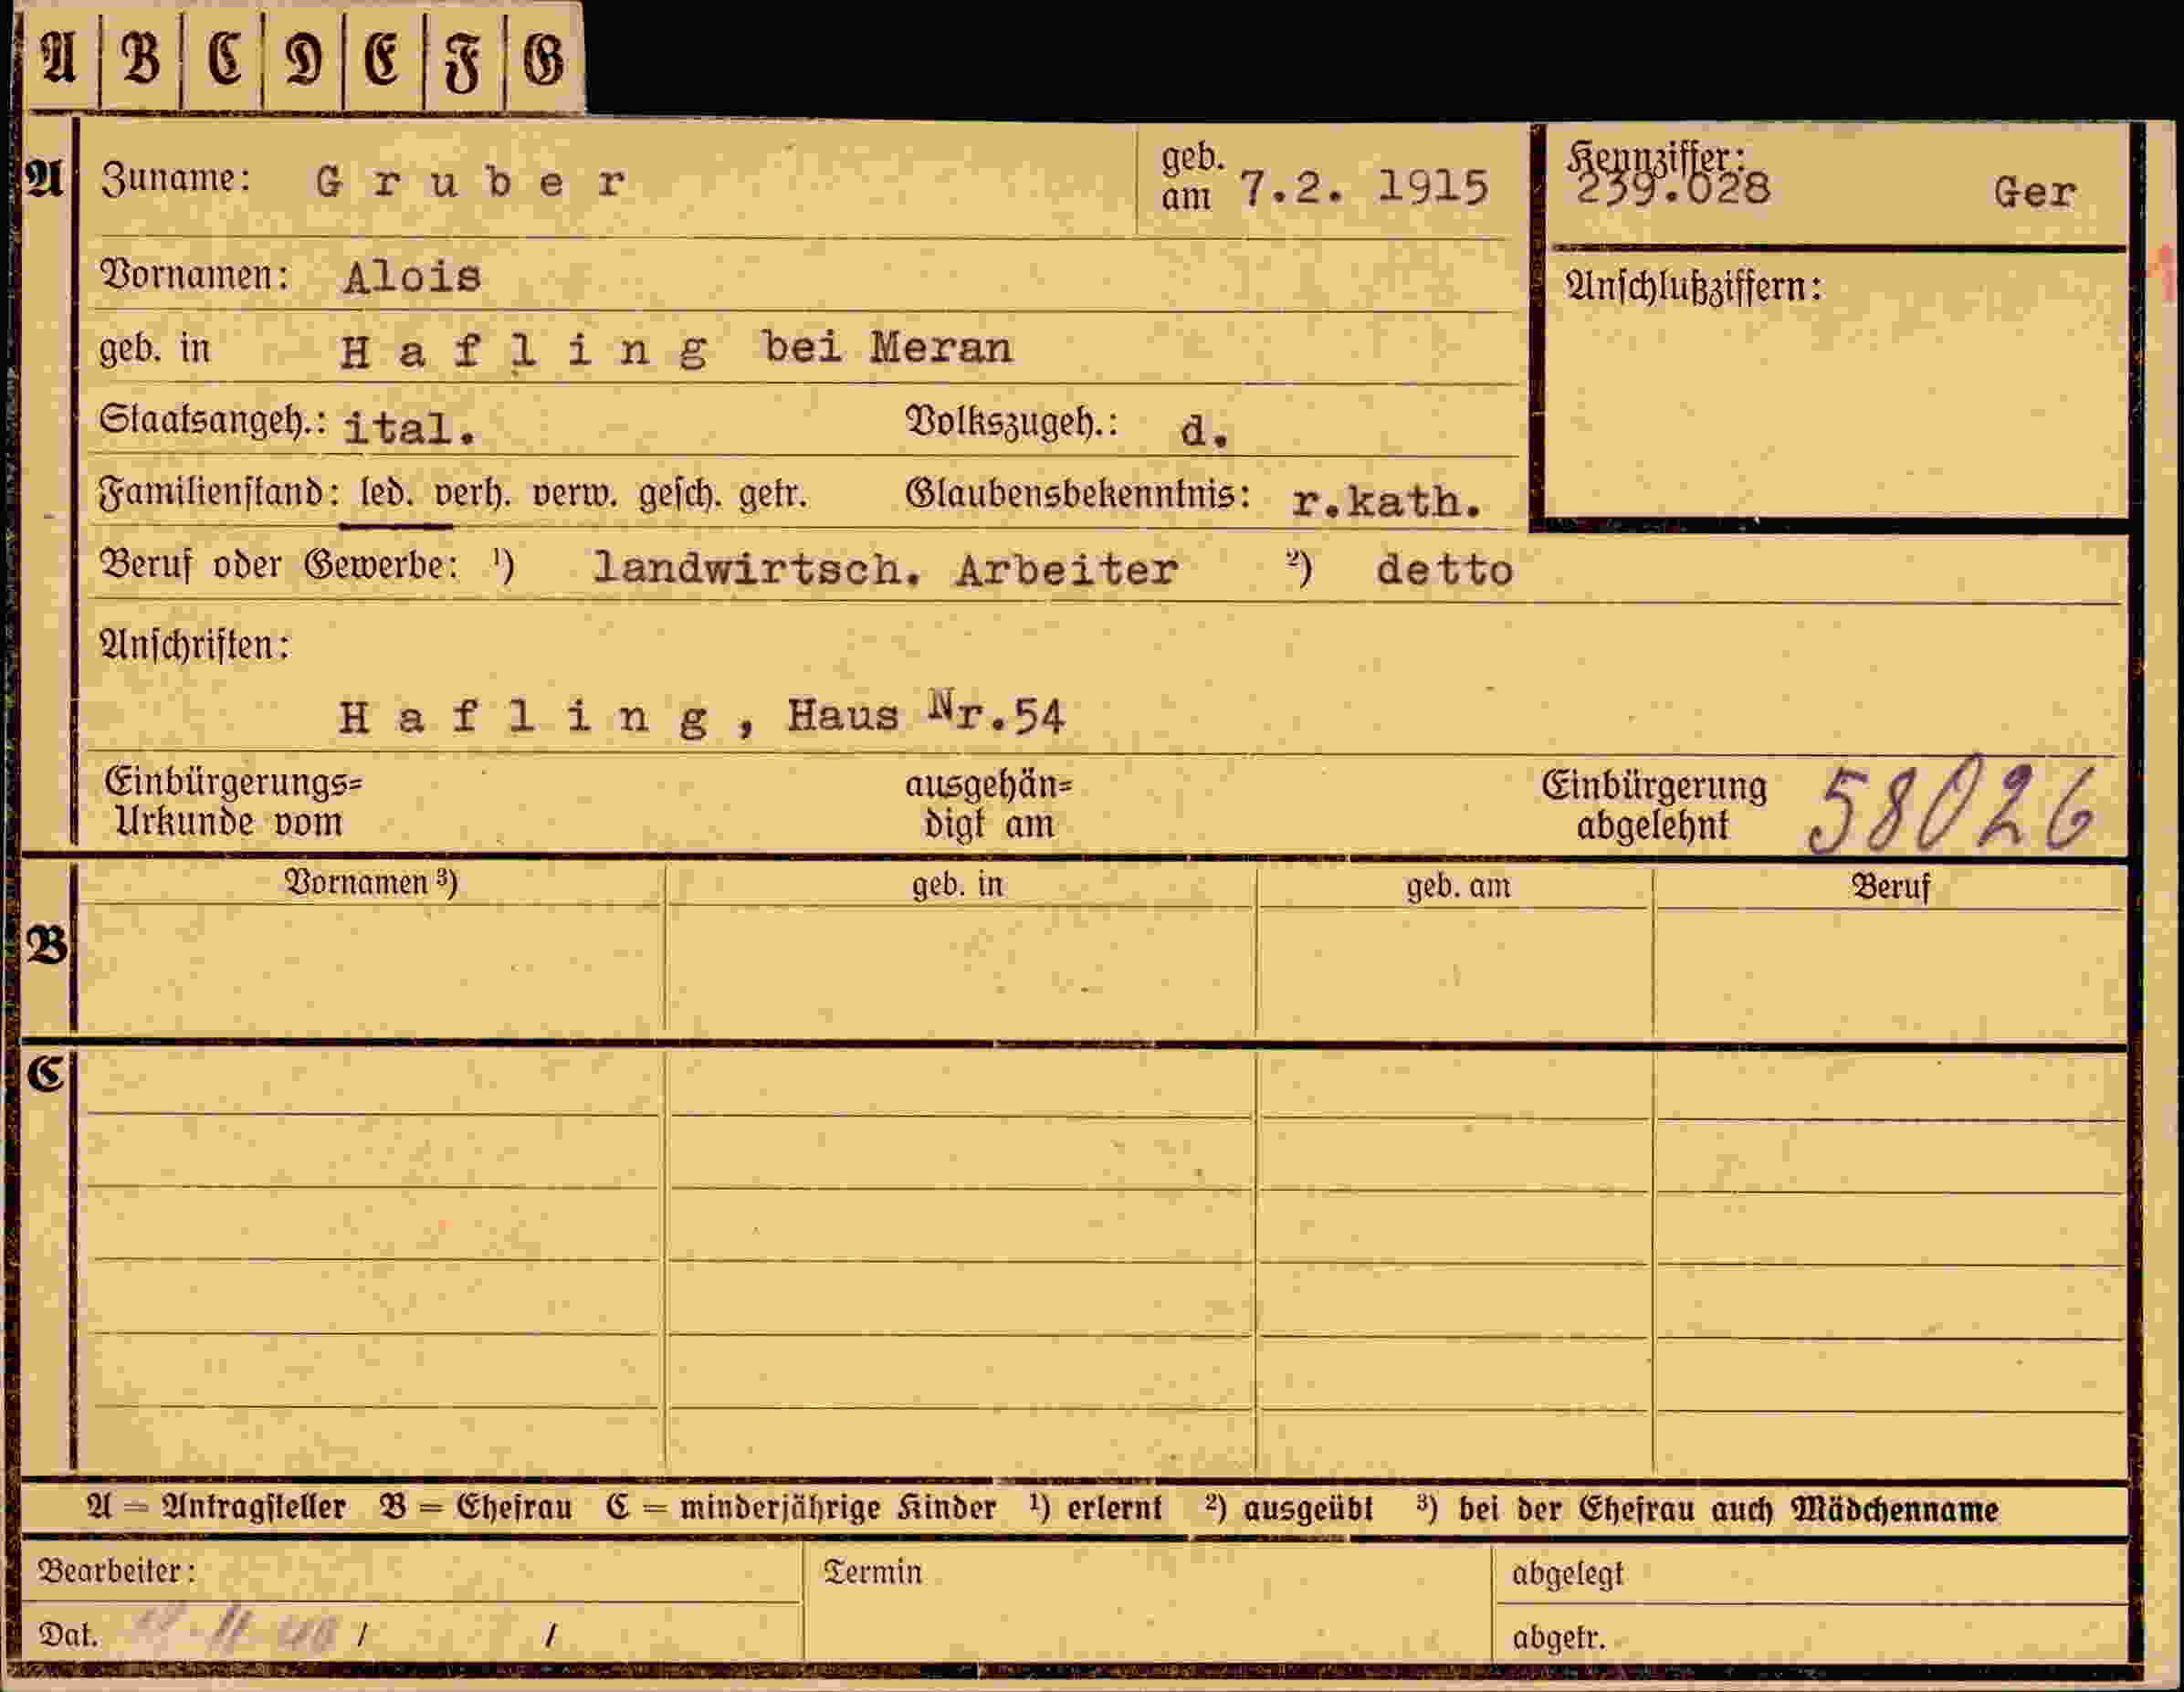 A B C D E F G
A Zuname: Gruber geb. am 7.2. 1915 Kennziffer: 239.028 Ger
Vornamen: Alois Anschlußziffern:
geb. in Hafling bei Meran
Staatsangeh.: ital. Volkszugeh.: d.
Familienstand: led. verh. verw. gesch. getr. Glaubensbekenntnis: r.kath.
Beruf oder Gewerbe: ¹) landwirtsch. Arbeiter ²) detto
Anschriften:
Hafling, Haus Nr.54
Einbürgerungs= ausgehän= Einbürgerung 58026
Urkunde vom digt am abgelehnt
Vornamen ³) geb. in geb. am Beruf
B
C
A = Antragsteller B = Ehefrau C = minderjährige Kinder ¹) erlernt ²) ausgeübt ³) bei der Ehefrau auch Mädchenname
Bearbeiter: Termin abgelegt
Dat. / / abgetr.